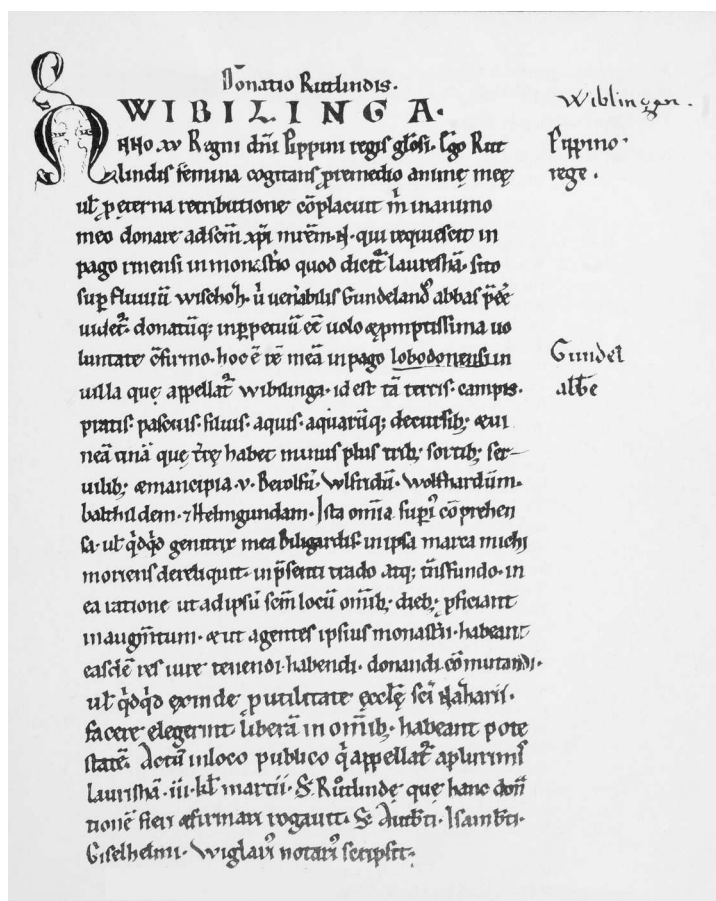 Donatio Rutlindis.
WIBILINGA.
Wiblingen.
ANNO .xv Regni dñi Pippini regis gl̃osi. Ego Rut
lindis femina cogitans p̱remedio animę meę
Pippino.
rege.
ul̃ p̱ ęterna retributione cõplacuit m̃ in animo
meo donare ad scm̃ xp̃i mr̃em. N. qui requiescit in
pago rinensi in monast̃io quod dicit̃ laureshã. sito
sup̱ fluuiũ wischoh̃. ũ uen̾abilis Gundeland̾ abbas p̃eẽ
uidet̃. donatũq; inp̱petuũ eẽ uolo ꝫ p̱mptissima uo
luntate c̃firmo. hoc ẽ rẽ meã in pago lobodonensi in
Gundel
abbe
uilla quę appellat̃ wibilinga. id est tã terris. campis.
pratis. pascuis. siluis. aquis. aquarũq; decursib; & ui
neã unã quę habet minus plus trib; sortib; ser-
uilib; & mancipia .v. Berolfũ. Wlfridũ. Wolfhardũm.
balthildem. ⁊ Helmgundam. Ista om̃ia sup̱i᾽ cõprehen
sa. ul̃ q̃dq̃d genitrix mea Biligardis in ipsa marca michi
moriens dereliquit. in p̃senti trado atq; t̃nsfundo. in
ea ratione ut ad ipsũ scm̃ locũ om̃ib; dieb; p̱ficiant
in augm̃tum. & ut agentes ipsius monast̃ii. habeant
easdẽ res iure tenendi. habendi. donandi. cõmutandi.
ul̃ q̃dq̃d exinde p̱ utilitate ecclę̃ sc̃i Naharii.
facere elegerint. liberã in om̃ib; habeant pote
statẽ. Actũ in loco publico q̃ appellat̃ a plurimis
Laurishã. iii. kl̃ martii. S̃. Růtlindę que hanc don̾
tionẽ fieri & firmari rogauit. S̃. Autb̃ti. Isamb̃ti.
Giselhelmi. Wiglari᾽ notari᾽ scripsit.